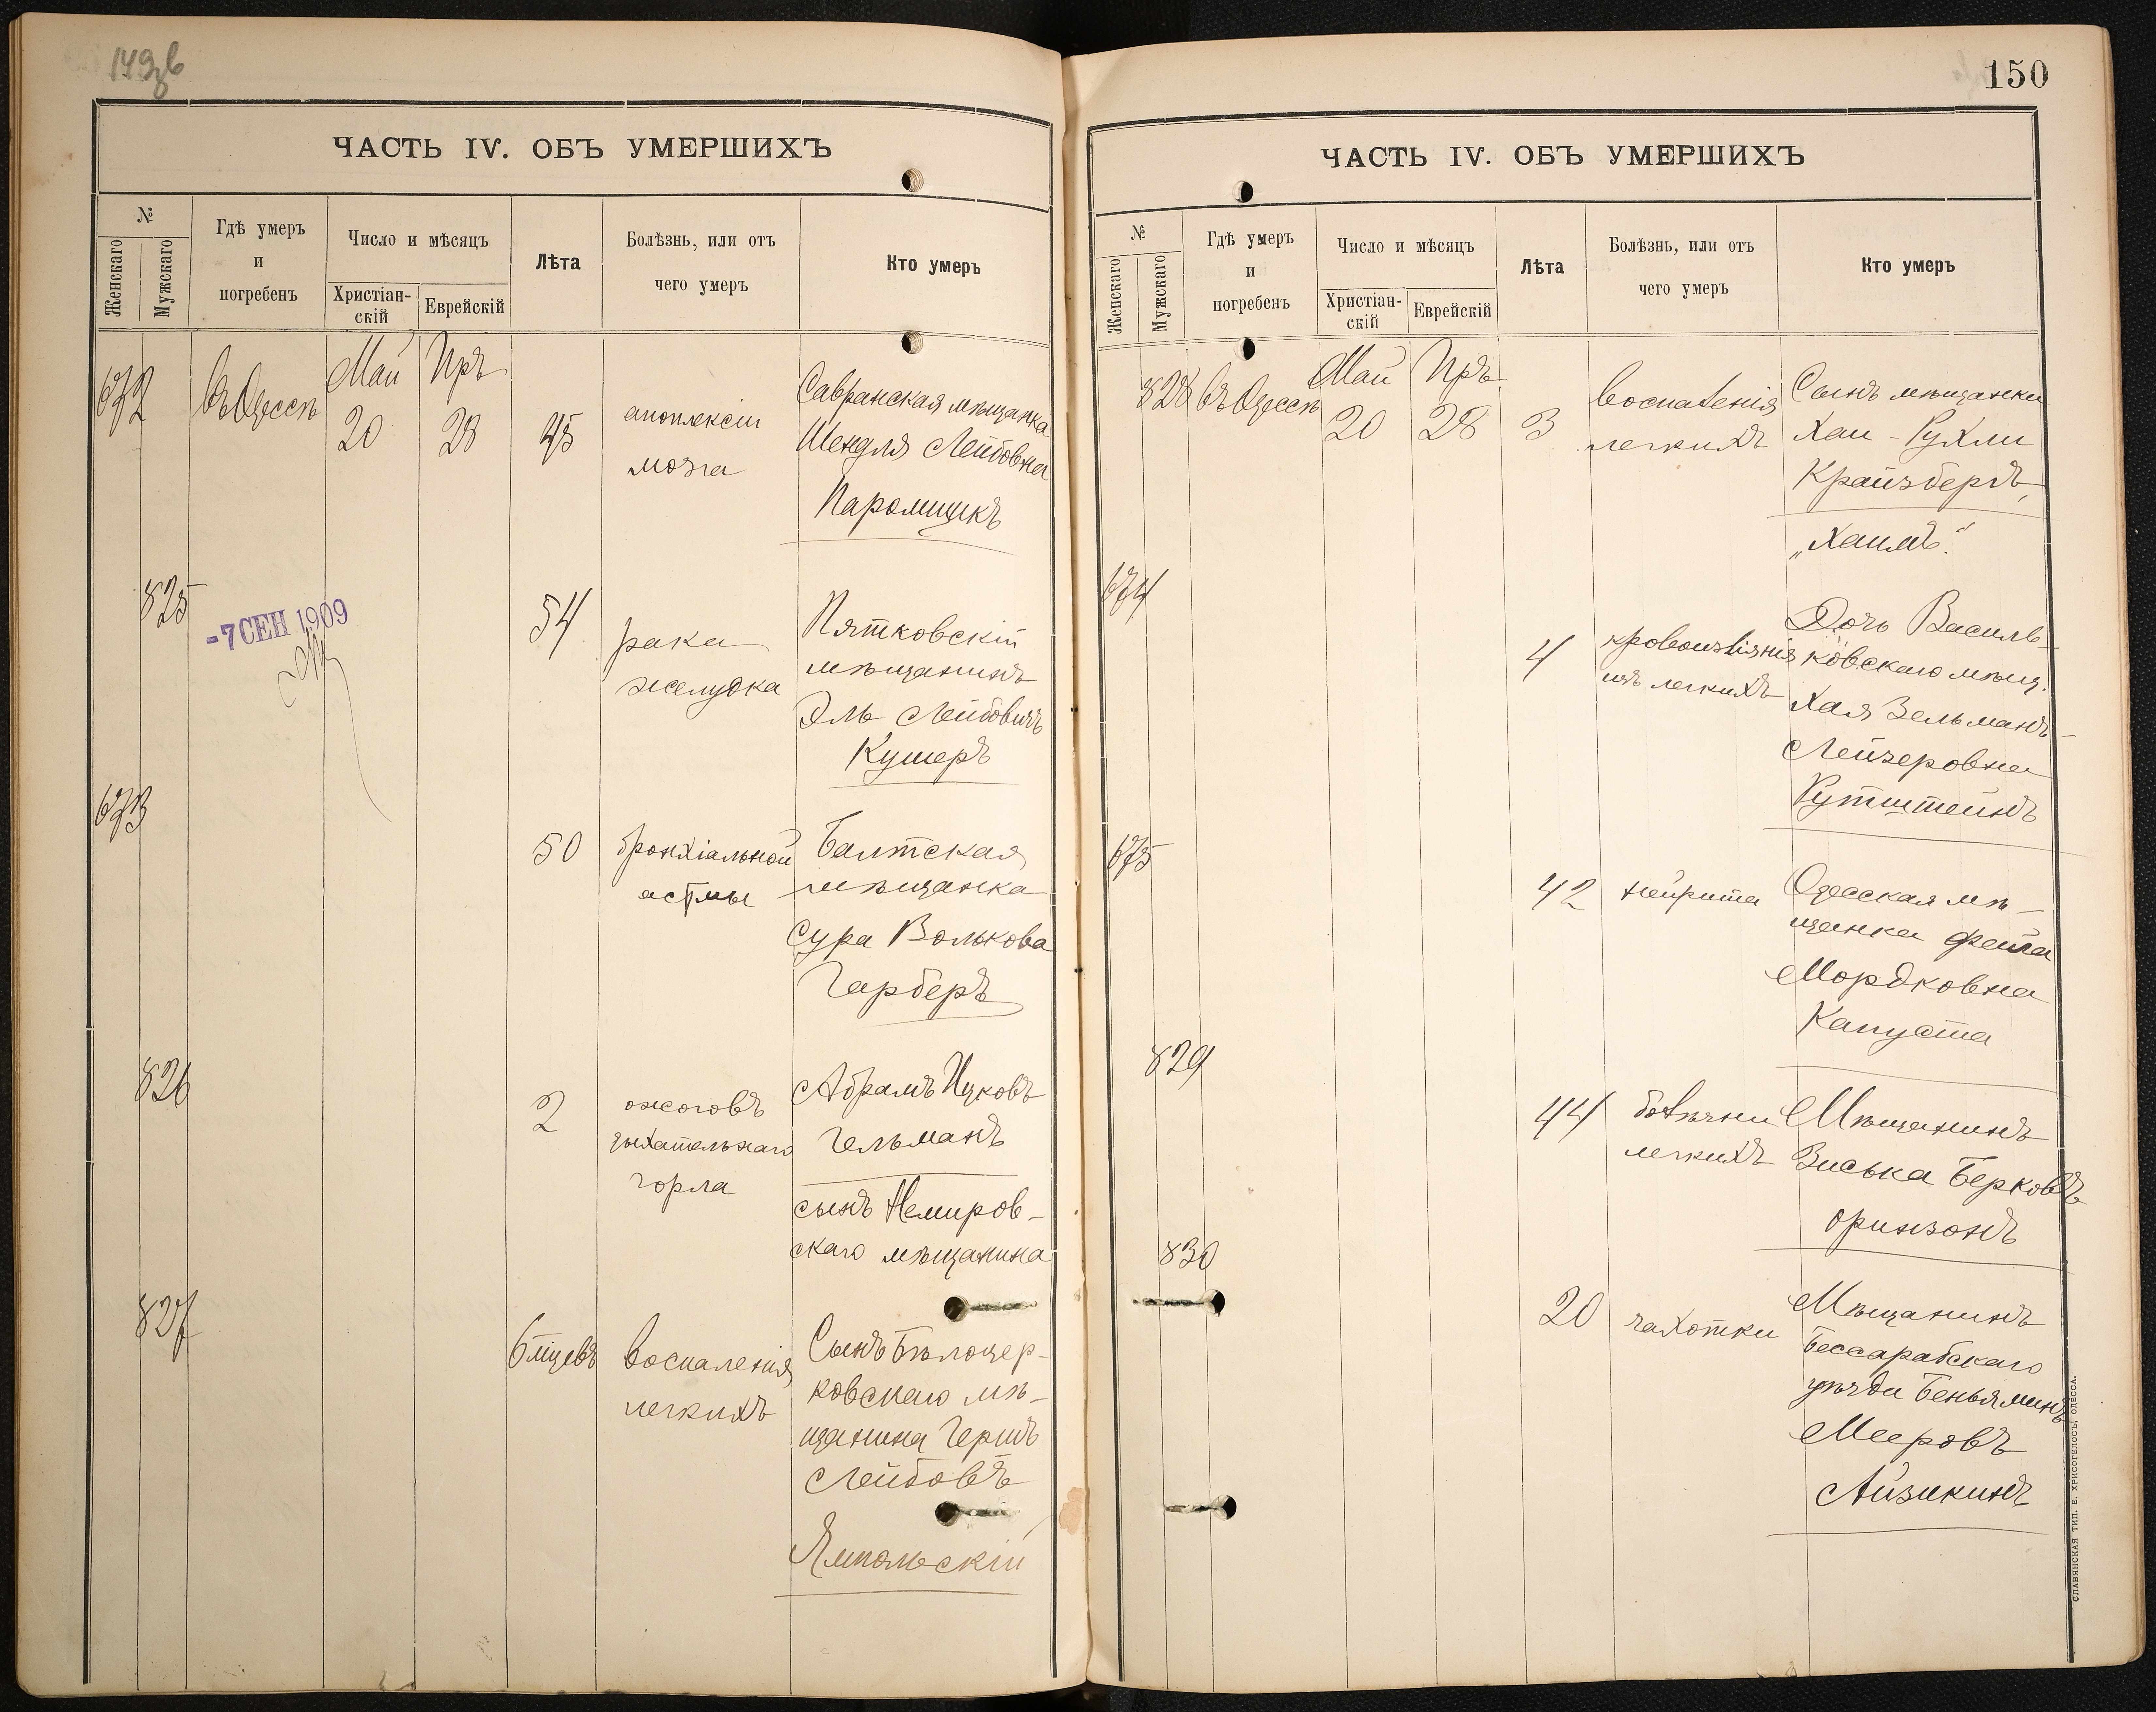 149об
ЧАСТЬ IV. ОБЪ УМЕРШИХЪ
№
Женскаго
Мужскаго
Гдѣ умеръ
и
погребенъ
Число и мѣсяцъ
Христіан-
скій
Еврейскій
Лѣта
Болѣзнь, или отъ
чего умеръ
Кто умеръ
672
въ Одессѣ
Май
20
Іръ
28
45
апоплексіи
мозга
Савранская мѣщанка
Шендля Лейбовна
Паромщикъ
825
-7 СЕН 1909
54
рака
желудка
Пятковскій
мѣщанинъ
Эль Лейбовичъ
Кушеръ
673
50
бронхіальной
астмы
Балтская
мѣщанка
Сура Волькова
Гарберъ
826
2
ожоговъ
дыхательнаго
горла
Абрамъ Ицковъ
Гельманъ
сынъ Немиров-
скаго мѣщанина
827
6 мцевъ
воспаленія
легкихъ
Сынъ Бѣлоцер-
ковскаго мѣ-
щанина Гершъ
Лейбовъ
Ямпольскій
150
ЧАСТЬ IV. ОБЪ УМЕРШИХЪ
№
Женскаго
Мужскаго
Гдѣ умеръ
и
погребенъ
Число и мѣсяцъ
Христіан-
скій
Еврейскій
Лѣта
Болѣзнь, или отъ
чего умеръ
Кто умеръ
828
въ Одессѣ
Май
20
Іръ
28
3
воспаленія
легкихъ
Сынъ мѣщанки
Хаи-Рухли
Крайзбергъ,
„Хаимъ“.
674
4
кровоизліянія
изъ легкихъ
Дочь Василь-
ковскаго мѣщ.
Хая Зельманъ-
Лейзеровна
Рутштейнъ
675
42
нефрита
Одесская мѣ-
щанка Фейга
Мордковна
Капуста
829
44
болѣзни
легкихъ
Мѣщанинъ
Зиська Берковъ
Оринзонъ
830
20
чахотки
Мѣщанинъ
Бессарабскаго
уѣзда Беньяминъ
Мееровъ
Айзикинъ
СЛАВЯНСКАЯ ТИП. Е. ХРИСОГЕЛОСЪ, ОДЕССА.